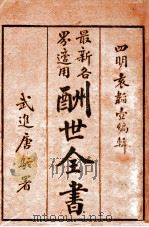 四明袁韜壺編輯
最新各
界適用
酬世全書
武進唐駝署